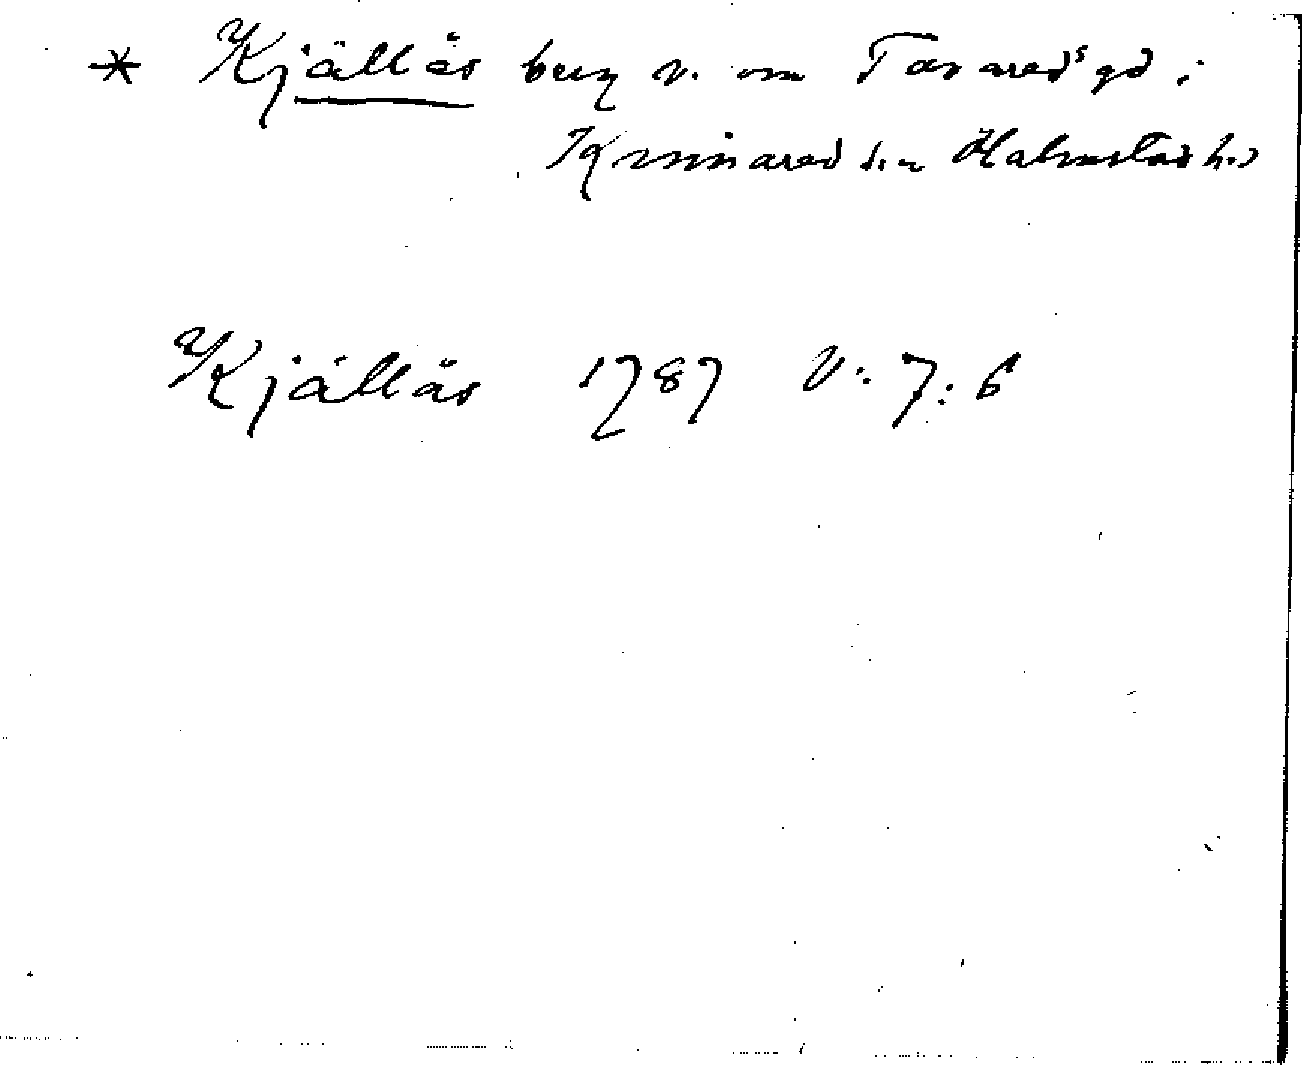 * Kjällås berg v. om Tavareds gd i
Kvinnared s:n Halmstad h:d
Kjällås 1787 V: 7: 6